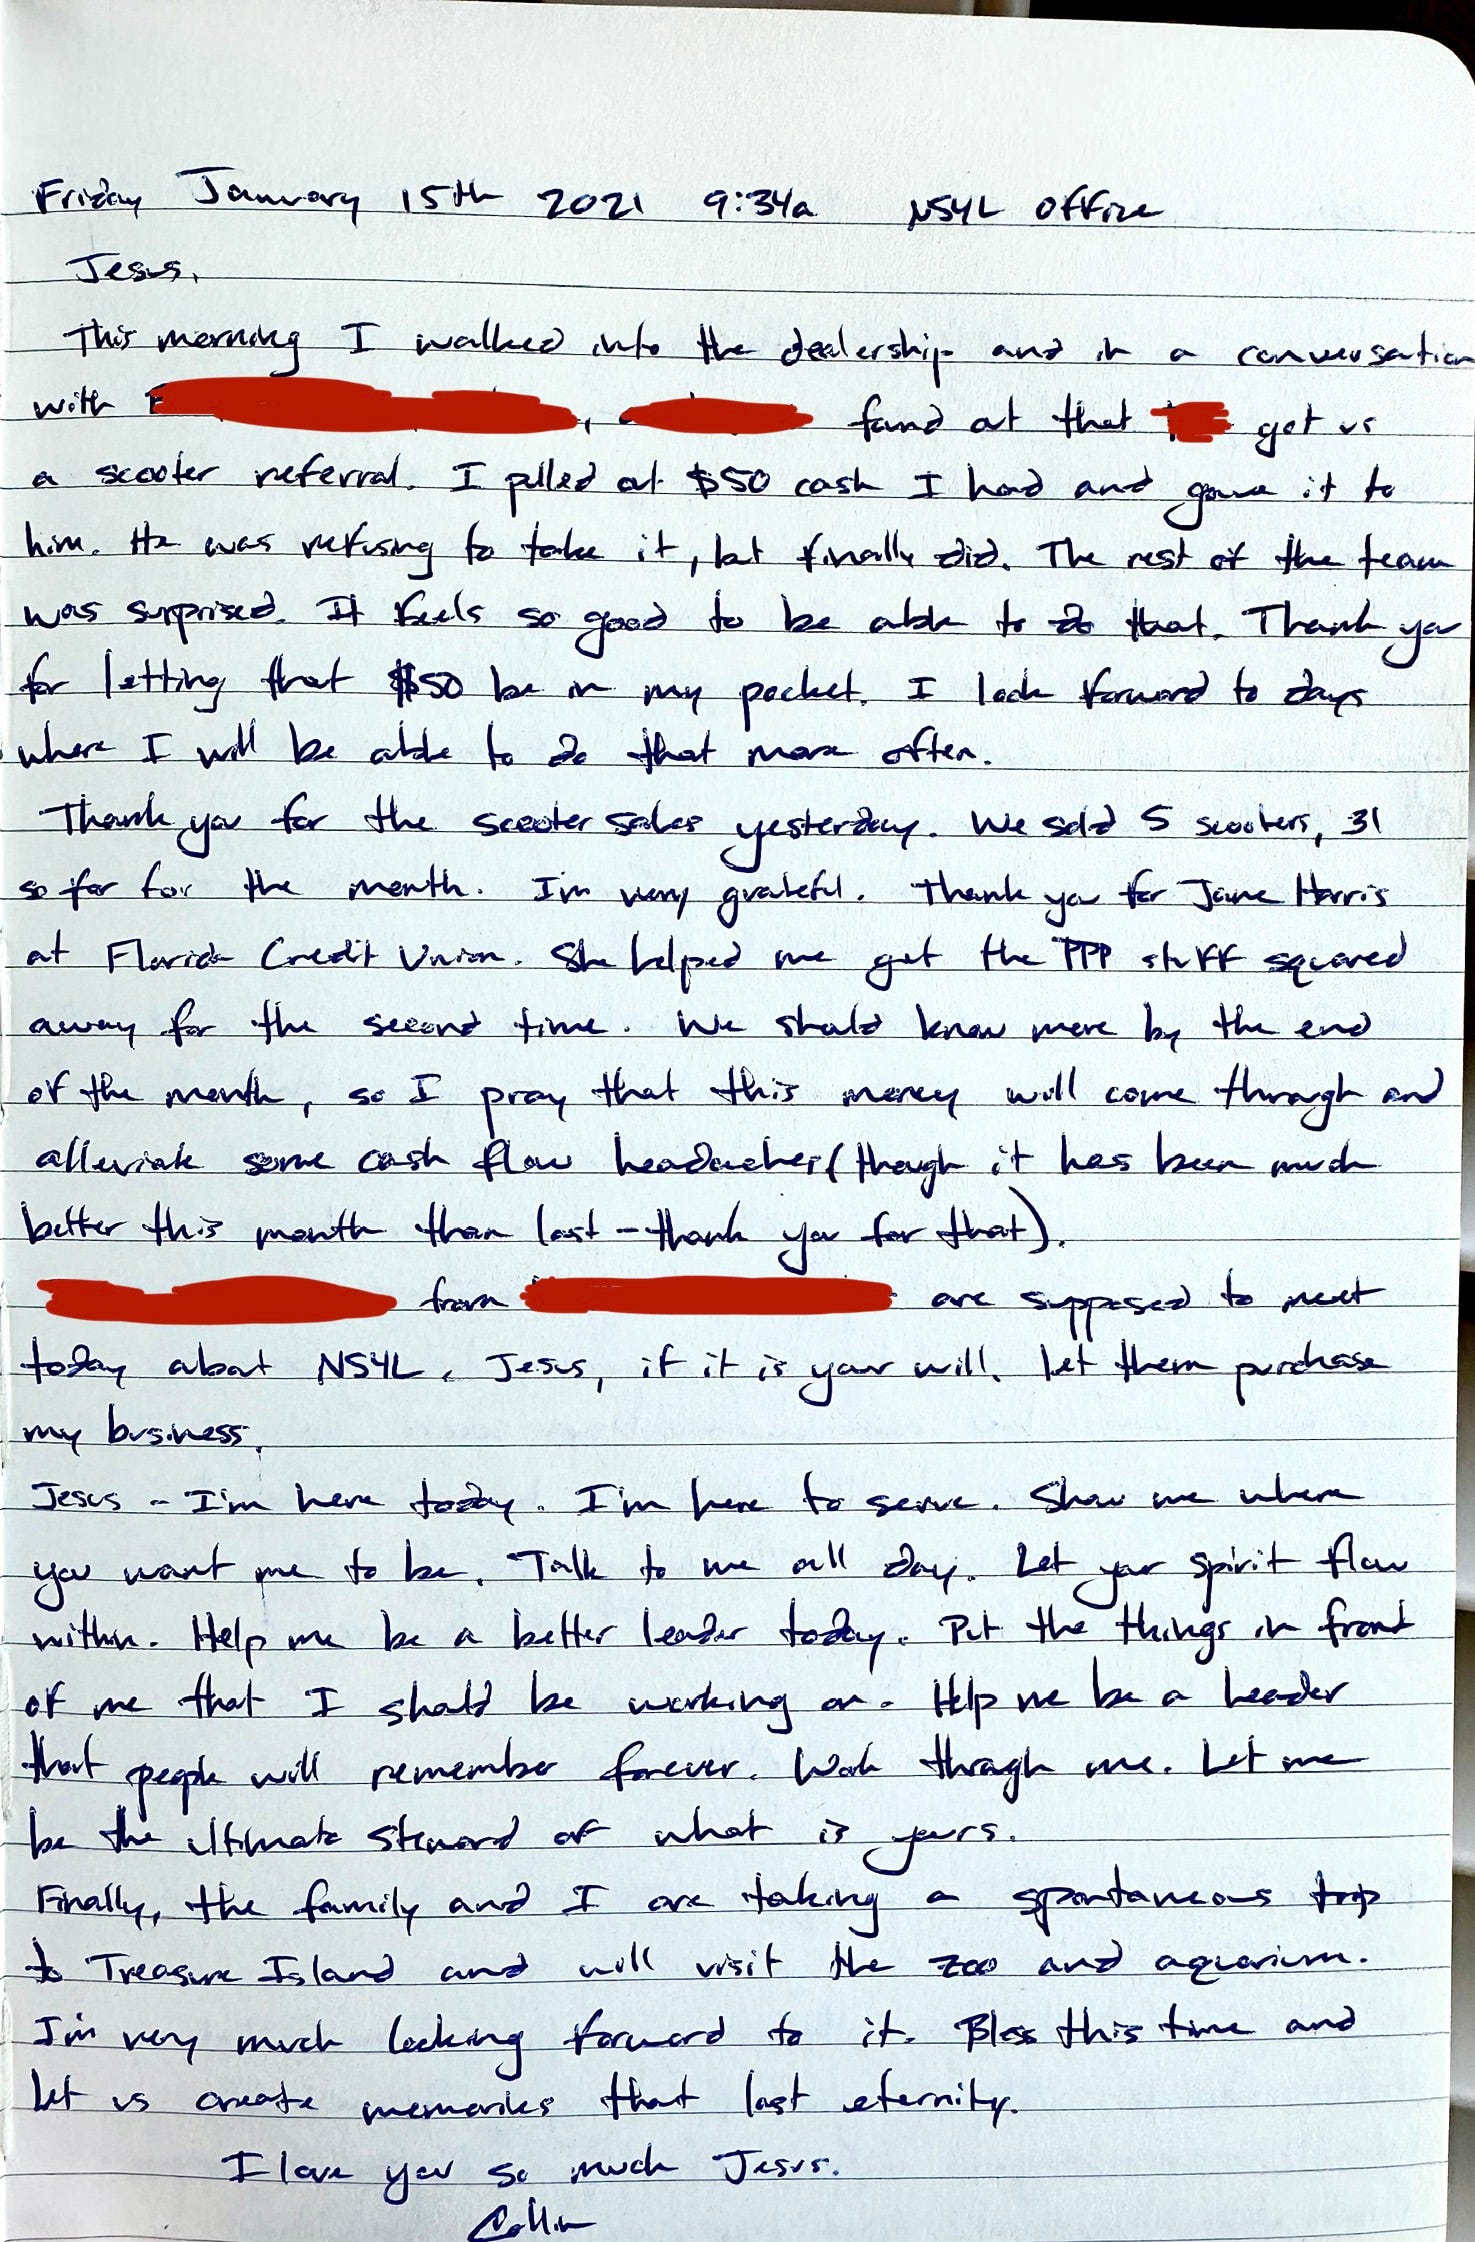 Friday January 15th 2021 9:34a NSYL Office
Jesus,
This morning I walked into the dealership and in a conversation
with , found out that got us
a scooter referral. I pulled out $50 cash I had and gave it to
him. He was refusing to take it, but finally did. The rest of the team
was surprised. It feels so good to be able to do that. Thank you
for letting that $50 be in my pocket. I look forward to days
where I will be able to do that more often.
Thank you for the scooter sales yesterday. We sold 5 scooters, 31
so far for the month. I'm very grateful. Thank you for Jane Harris
at Florida Credit Union. She helped me get the PPP stuff squared
away for the second time. We should know more by the end
of the month, so I pray that this money will come through and
alleviate some cash flow headaches (though it has been much
better this month than last - thank you for that).
from are supposed to meet
today about NSYL. Jesus, if it is your will, let them purchase
my business.
Jesus - I'm here today. I'm here to serve. Show me where
you want me to be. Talk to me all day. Let your spirit flow
within. Help me be a better leader today. Put the things in front
of me that I should be working on. Help me be a leader
that people will remember forever. Work through me. Let me
be the ultimate steward of what is yours.
Finally, the family and I are taking a spontaneous trip
to Treasure Island and will visit the zoo and aquarium.
I'm very much looking forward to it. Bless this time and
let us create memories that last eternity.
I love you so much Jesus.
Collin